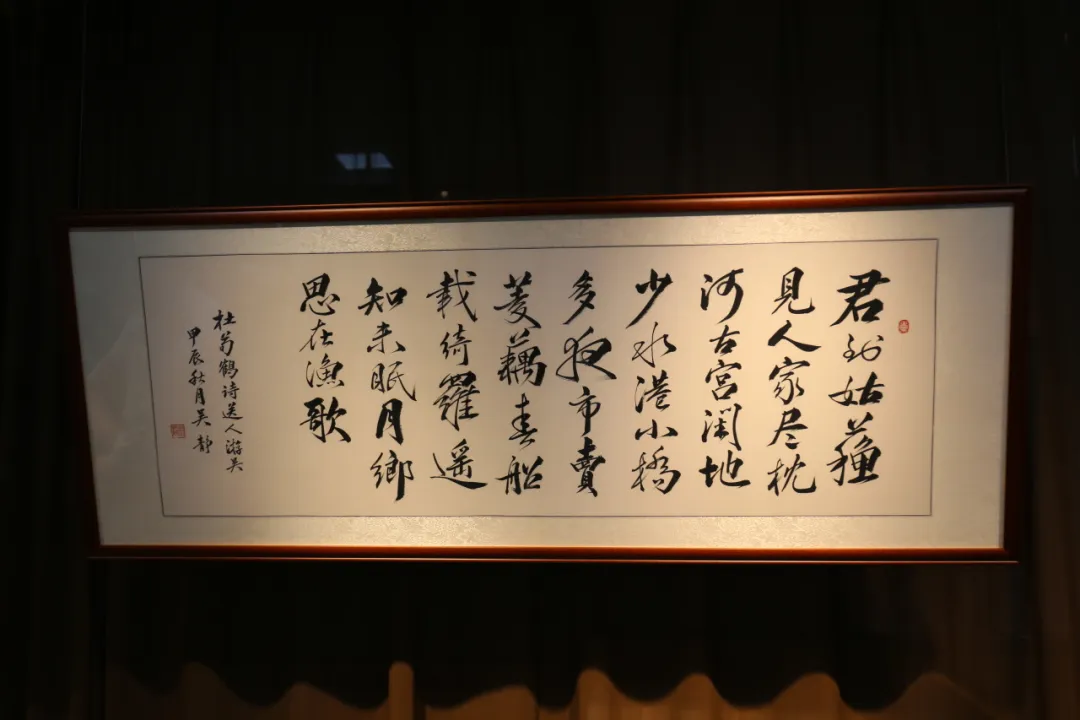 君到姑蘓
見人家尽枕
河古宮閑地
少水港小橋
多夜市賣
菱藕春船
載綺羅遥
知未眠月鄉
思在漁歌
杜荀鶴詩送人游吴
甲辰秋月吴靜